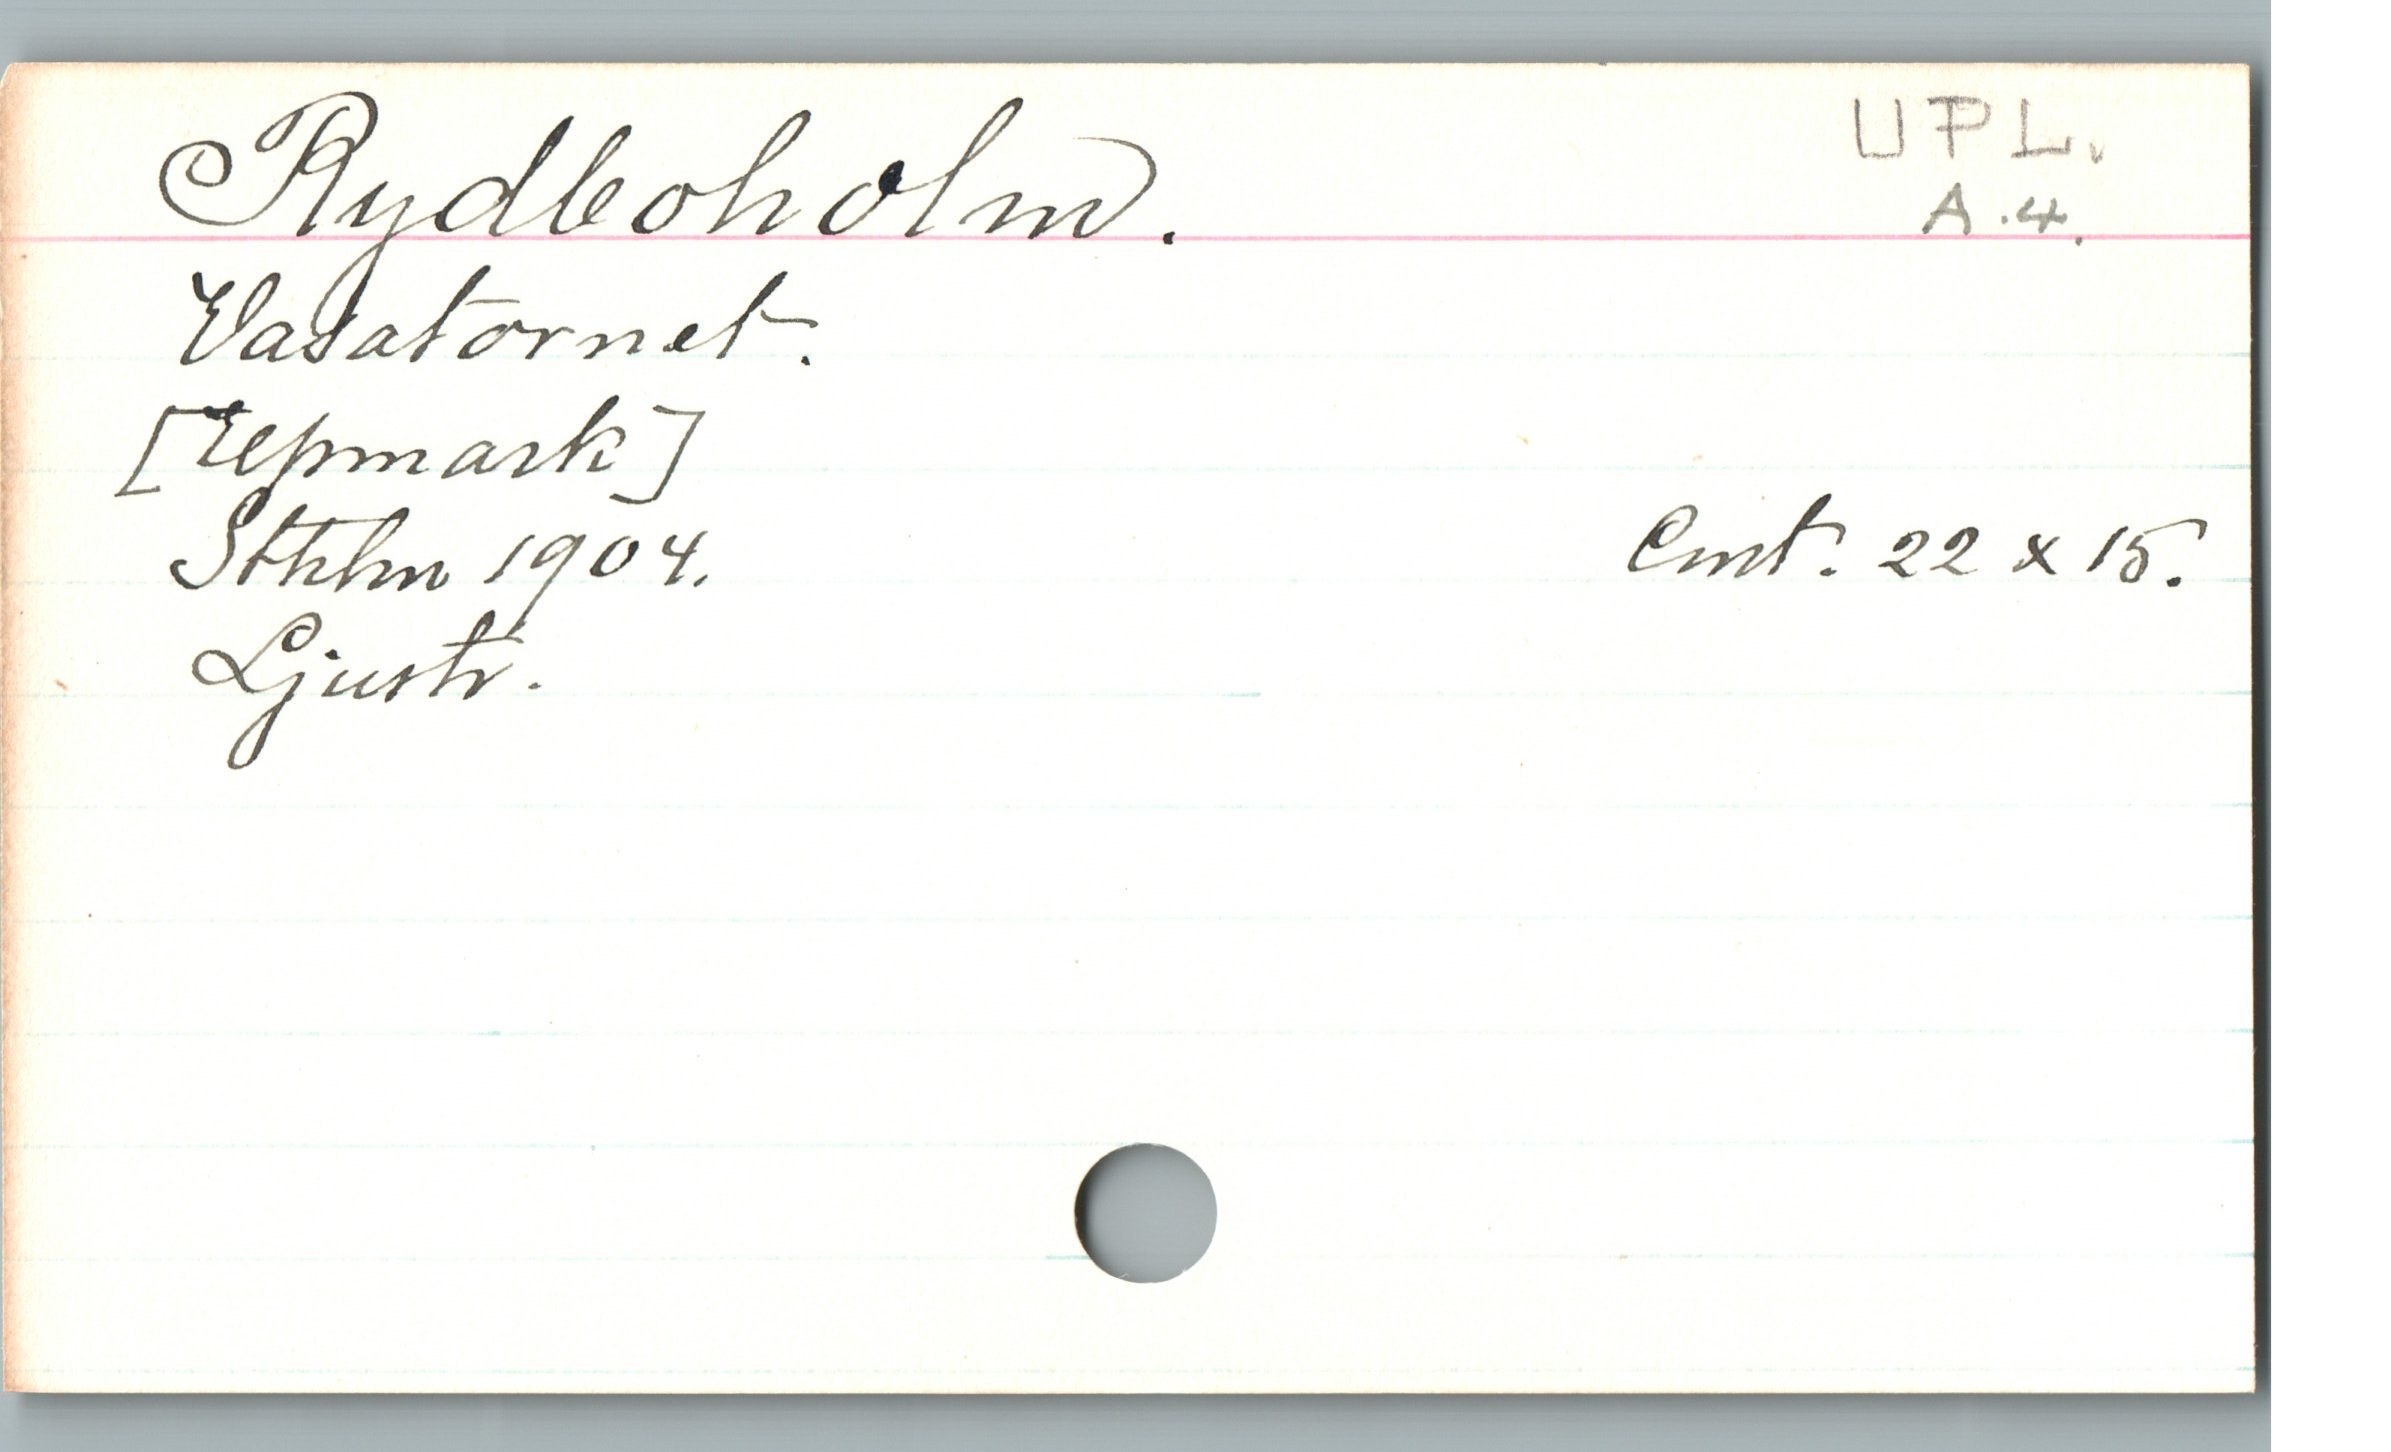 Rydboholm.
UPL.
A.4.
Vasatornet.
[Vepmark]
Sthlm 1904.
Cmt. 22 x 15.
Ljustr.